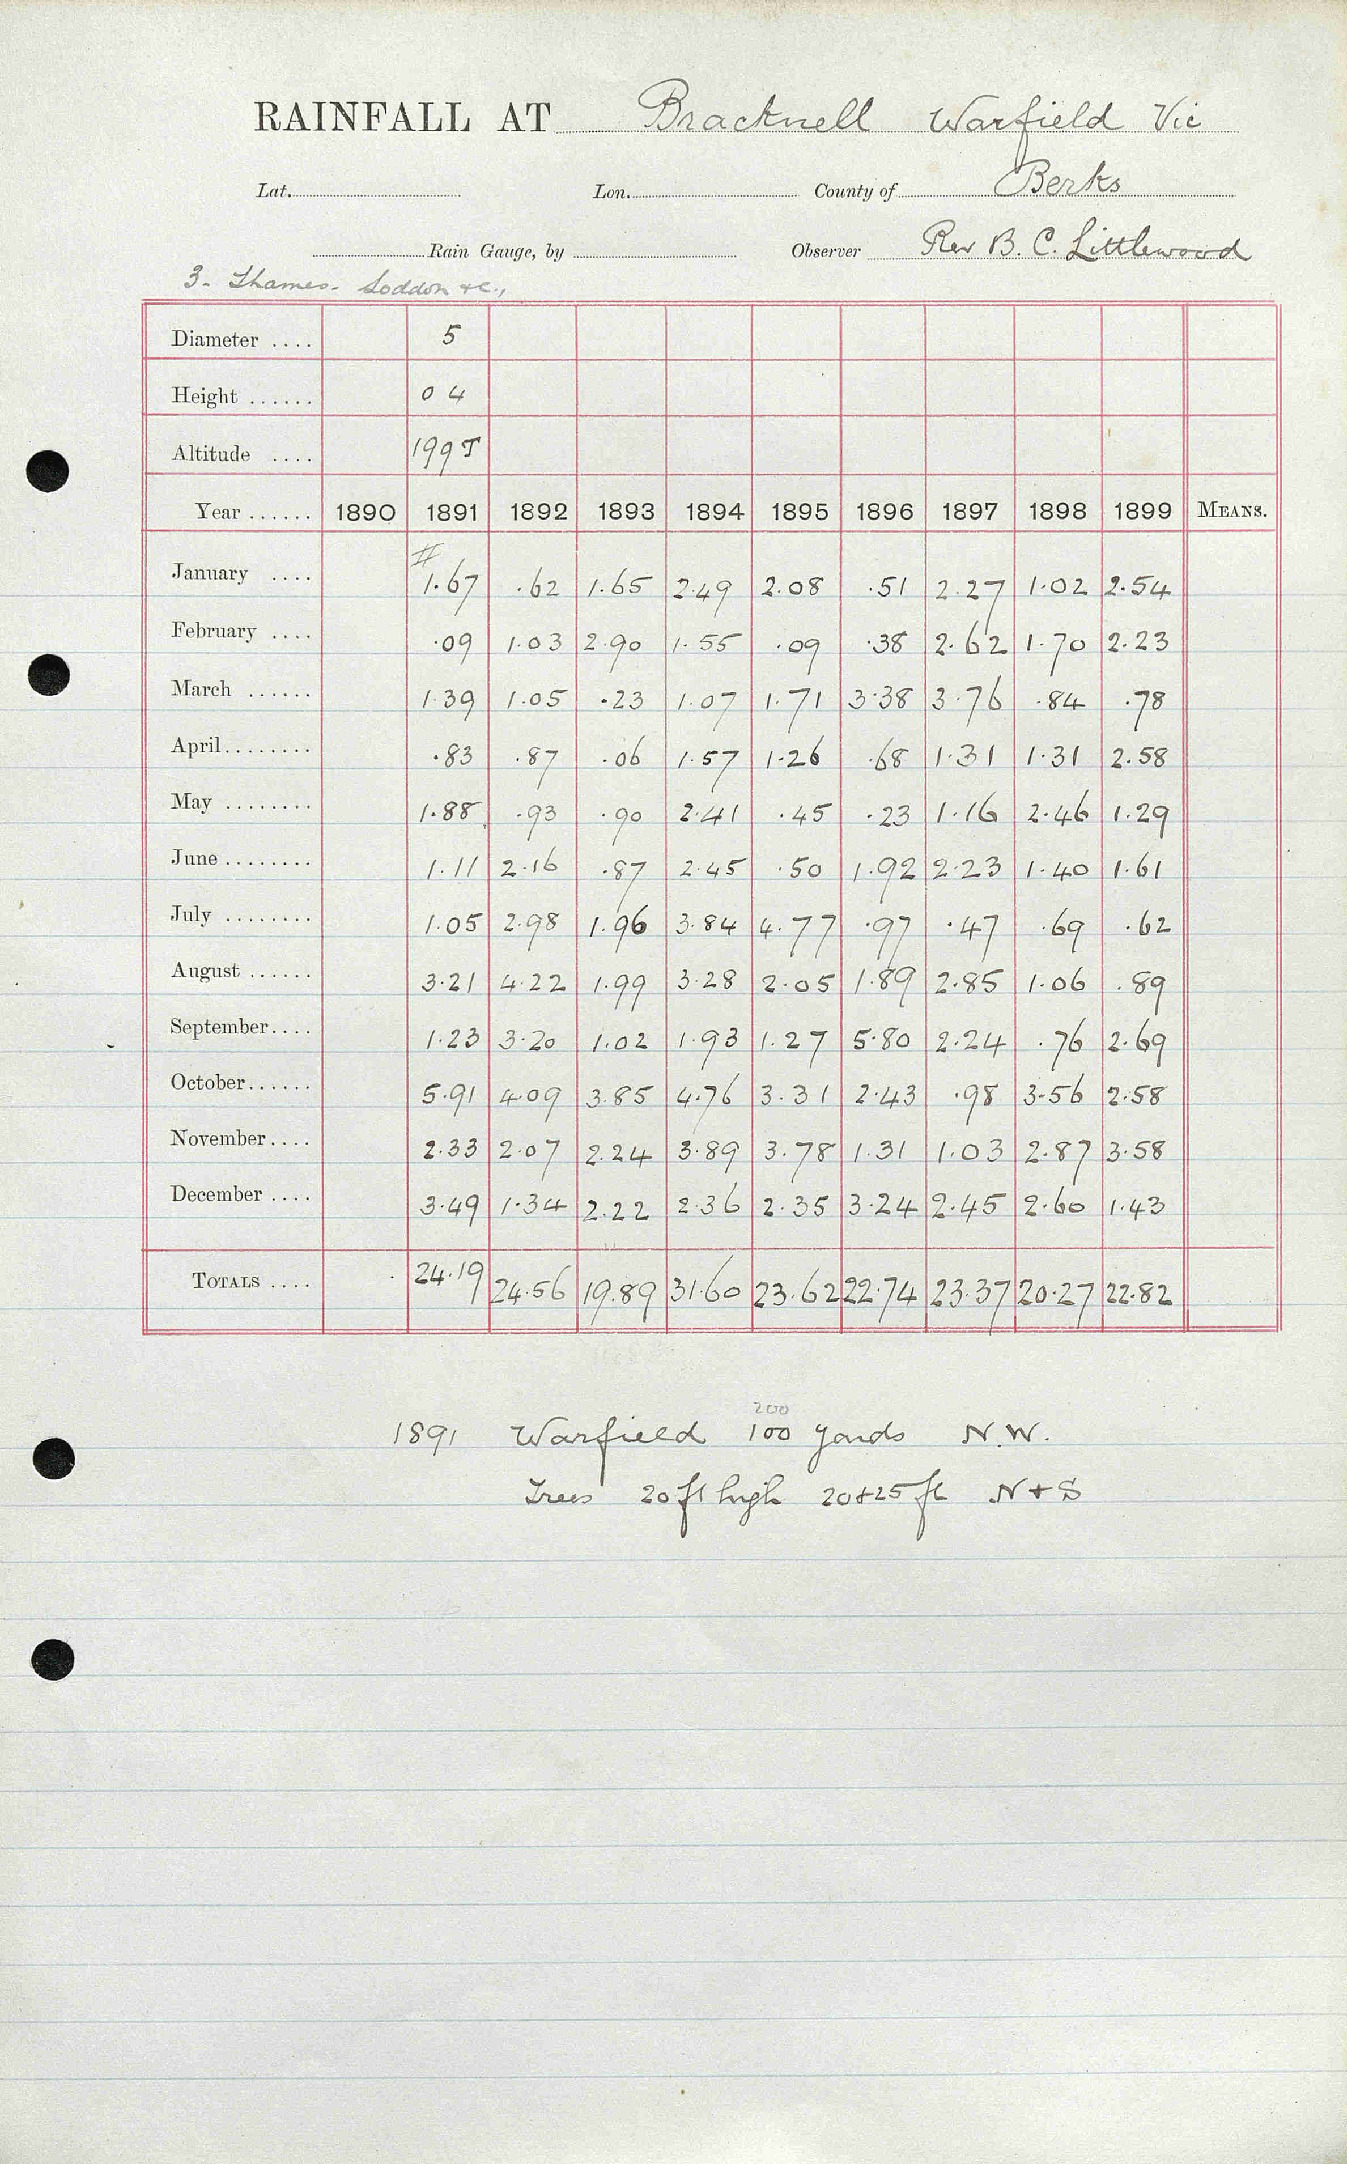 RAINFALL AT Bracknell Warfield Vic
Lat. Lon. County of Berks
Rain Gauge, by Observer Rev B. C. Littlewood
3. Thames. Loddon &c.,
Diameter .... 5
Height ...... 0 4
Altitude .... 199 T
Year ...... 1890 1891 1892 1893 1894 1895 1896 1897 1898 1899 MEANS.
#
January .... 1.67 .62 1.65 2.49 2.08 .51 2.27 1.02 2.54
February .... .09 1.03 2.90 1.55 .09 .38 2.62 1.70 2.23
March ...... 1.39 1.05 .23 1.07 1.71 3.38 3.76 .84 .78
April........ .83 .87 .06 1.57 1.26 .68 1.31 1.31 2.58
May ........ 1.88 .93 .90 2.41 .45 .23 1.16 2.46 1.29
June ........ 1.11 2.16 .87 2.45 .50 1.92 2.23 1.40 1.61
July ........ 1.05 2.98 1.96 3.84 4.77 .97 .47 .69 .62
August ...... 3.21 4.22 1.99 3.28 2.05 1.89 2.85 1.06 .89
September.... 1.23 3.20 1.02 1.93 1.27 5.80 2.24 .76 2.69
October...... 5.91 4.09 3.85 4.76 3.31 2.43 .98 3.56 2.58
November.... 2.33 2.07 2.24 3.89 3.78 1.31 1.03 2.87 3.58
December .... 3.49 1.34 2.22 2.36 2.35 3.24 2.45 2.60 1.43
TOTALS .... 24.19 24.56 19.89 31.60 23.62 22.74 23.37 20.27 22.82
200
1891 Warfield 100 yards N.W.
Trees 20 ft high 20+25 ft N+S